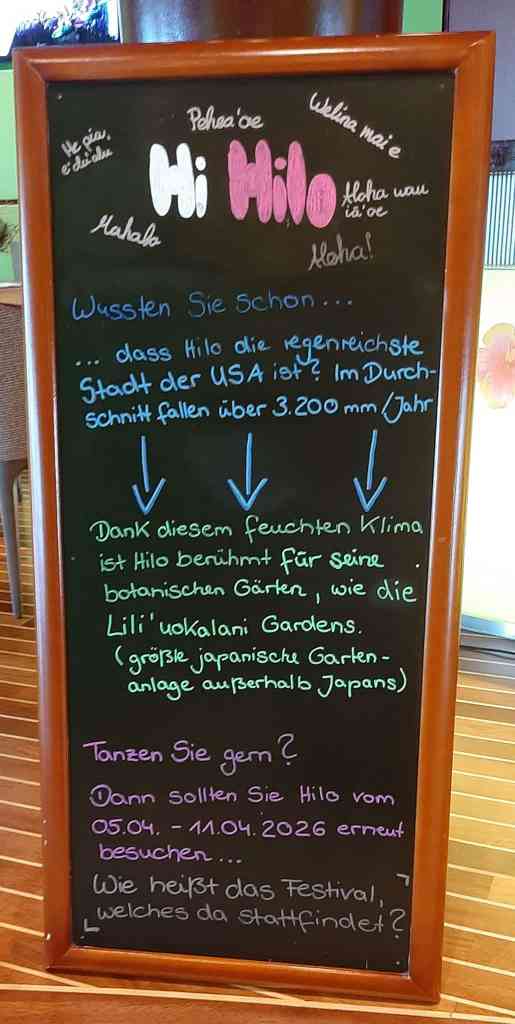 Pehea'oe
Welina mai e
He pia,
e 'olu'olu
Hi Hilo
Aloha wau
iā'oe
Mahalo
Aloha!
Wussten Sie schon...
... dass Hilo die regenreichste
Stadt der USA ist? Im Durch-
schnitt fallen über 3.200 mm/Jahr
Dank diesem feuchten Klima
ist Hilo berühmt für seine
botanischen Gärten, wie die
Lili'uokalani Gardens.
(größte japanische Garten-
anlage außerhalb Japans)
Tanzen Sie gern?
Dann sollten Sie Hilo vom
05.04. - 11.04.2026 erneut
besuchen...
Wie heißt das Festival,
welches da stattfindet?